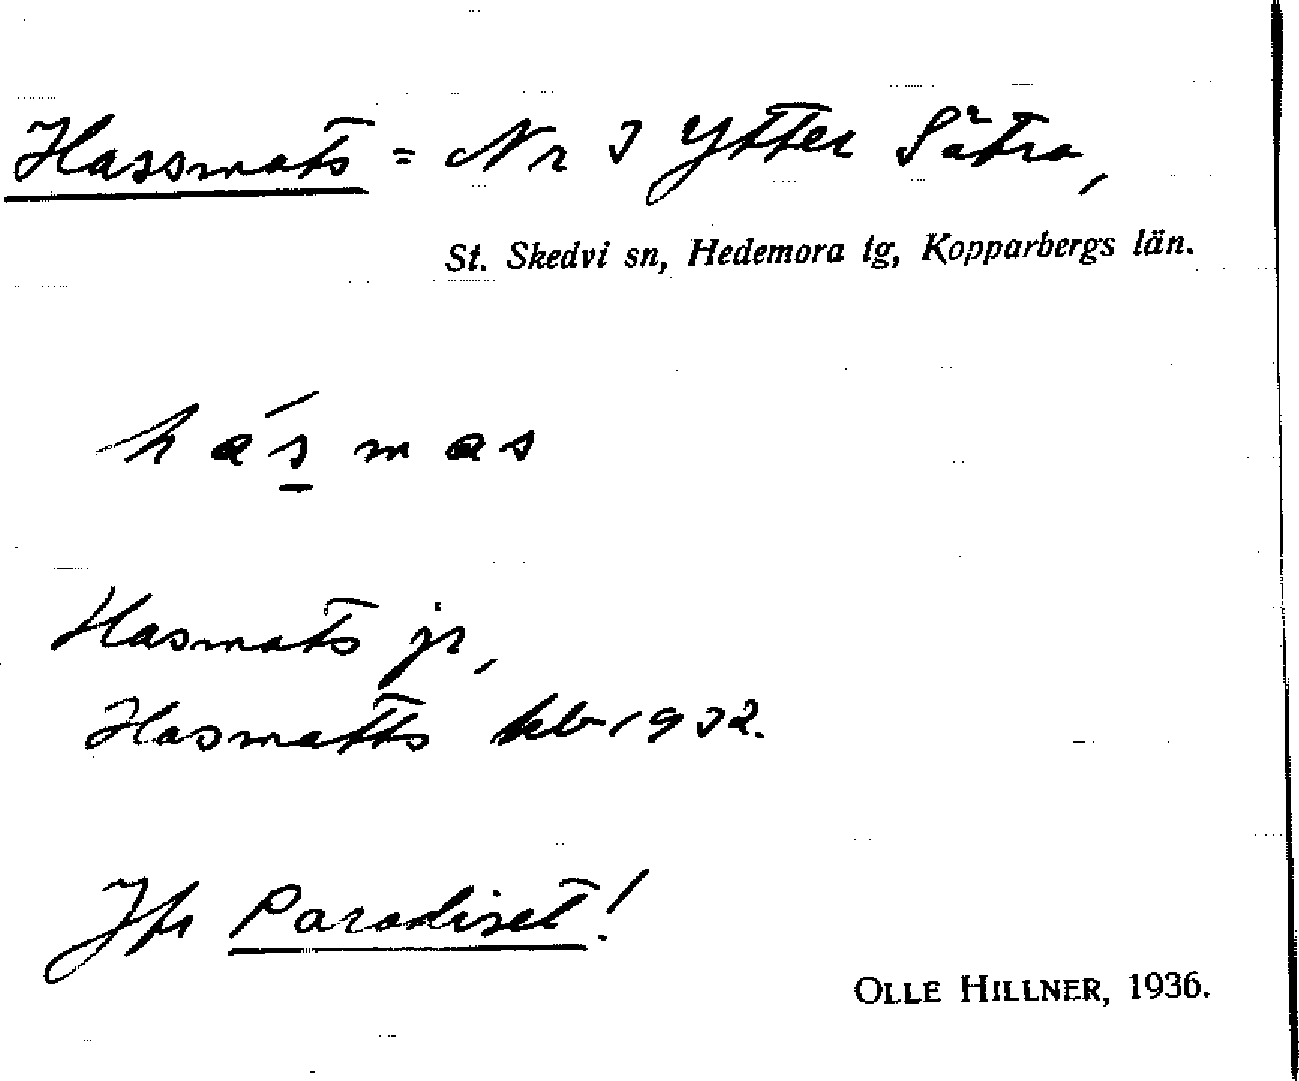 Hassmats = Nr 3 Ytter Sätra,
St. Skedvi sn, Hedemora tg, Kopparbergs län.
hás̲mas
Hasmats jr,
Hasmatts kb 1932.
Jfr Paradiset!
OLLE HILLNER, 1936.